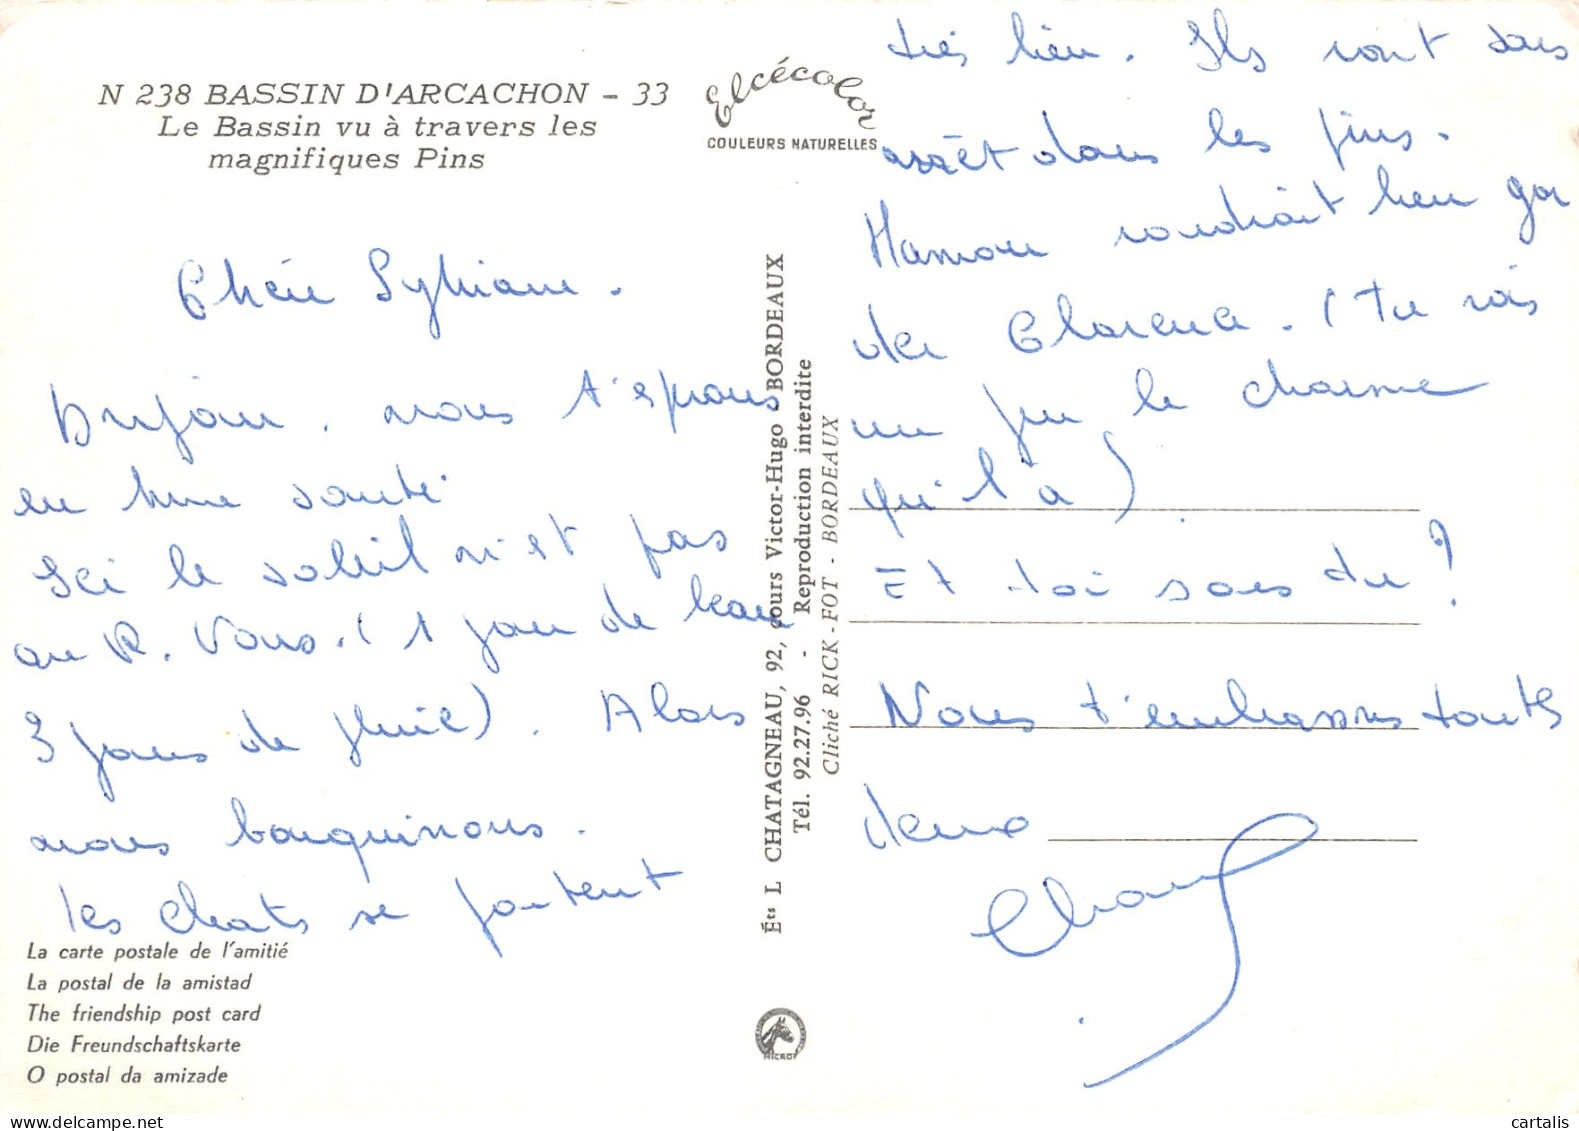 N 238 BASSIN D'ARCACHON - 33
Le Bassin vu à travers les
magnifiques Pins
Elcécolor
COULEURS NATURELLES
Chérie Sylviane.
Bonjour, nous t'espérons
en bonne santé.
Ici le soleil n'est pas
au R. Vous. (1 jour de beau
3 jours de pluie). Alors
nous bouquinons.
Les chats se portent
La carte postale de l'amitié
La postal de la amistad
The friendship post card
Die Freundschaftskarte
O postal da amizade
Éts L CHATAGNEAU, 92, cours Victor-Hugo - BORDEAUX
Tél. 92.27.96 - Reproduction interdite
Cliché RICK-FOT - BORDEAUX
MICRO
très bien. Ils vont sans
arrêt dans les pins.
Maman voudrait bien gar
der Clarence. (tu vois
un peu le charme
qu'il a)
Et toi que dis-tu ?
Nous t'embrassons toutes
deux
cartalis
www.delcampe.net